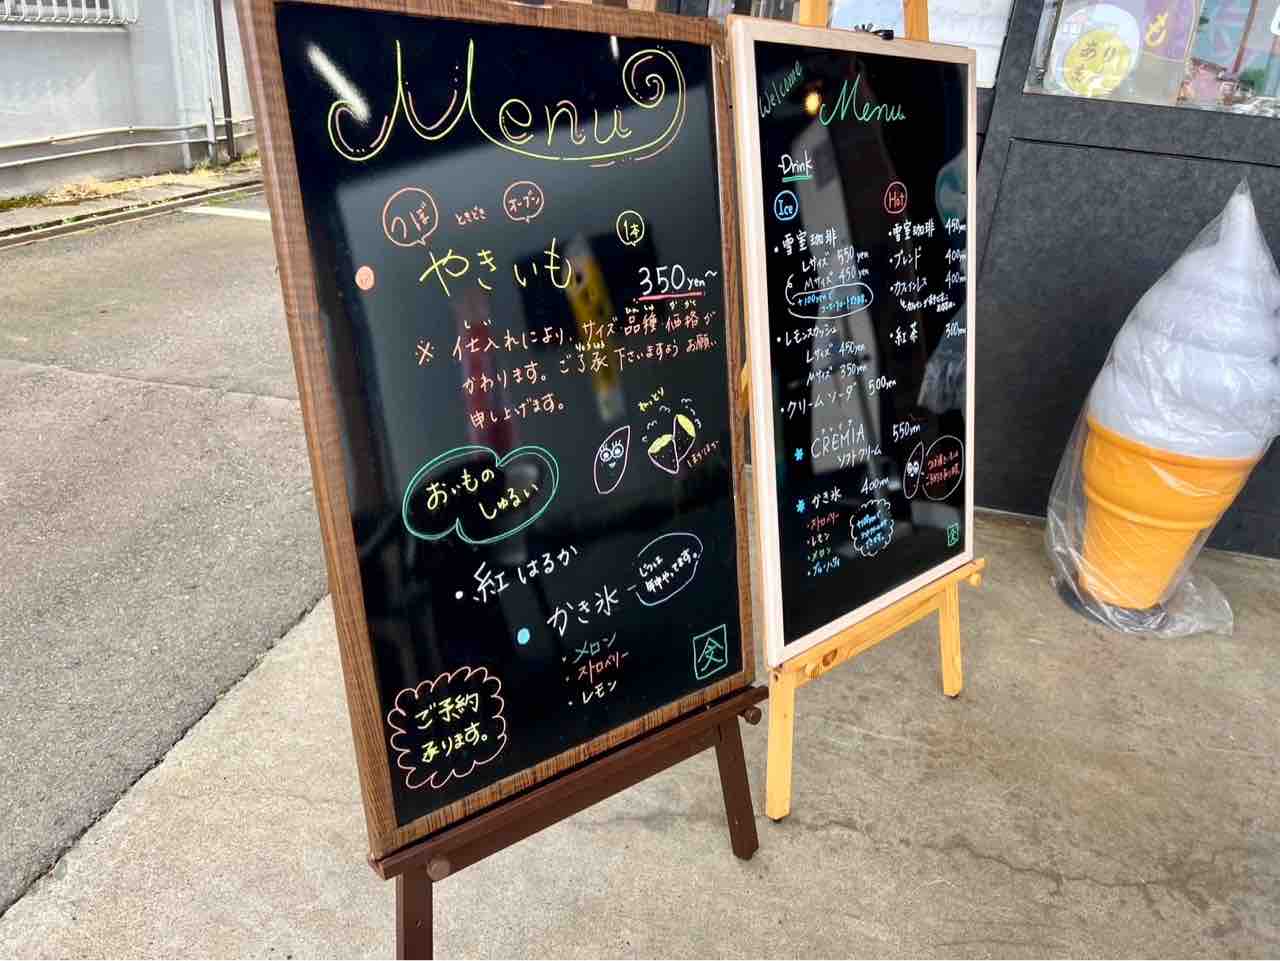 Menu
つぼ ときどき オーブン
やきいも
1本
350yen~
※ 仕入れにより、サイズ 品種 価格が
かわります。ご了承下さいますよう お願い
申し上げます。
ねっとり
ほくほく
おいもの
しゅるい
・紅はるか
かき氷
じつは
年中やってます。
・メロン
・ストロベリー
・レモン
ご予約
承ります。
Welcome
Menu
Drink
Ice
・雪室珈琲
Lサイズ 550yen
Mサイズ 450yen
+100yenで
・レモンスカッシュ
Lサイズ 450yen
Mサイズ 350yen
・クリームソーダ 500yen
CREMIA 550yen
ソフトクリーム
かき氷 400yen
・ストロベリー
・レモン
・メロン
・ブルーハワイ
Hot
・雪室珈琲 450yen
・ブレンド 400yen
・カフェインレス 400yen
・紅茶 300yen